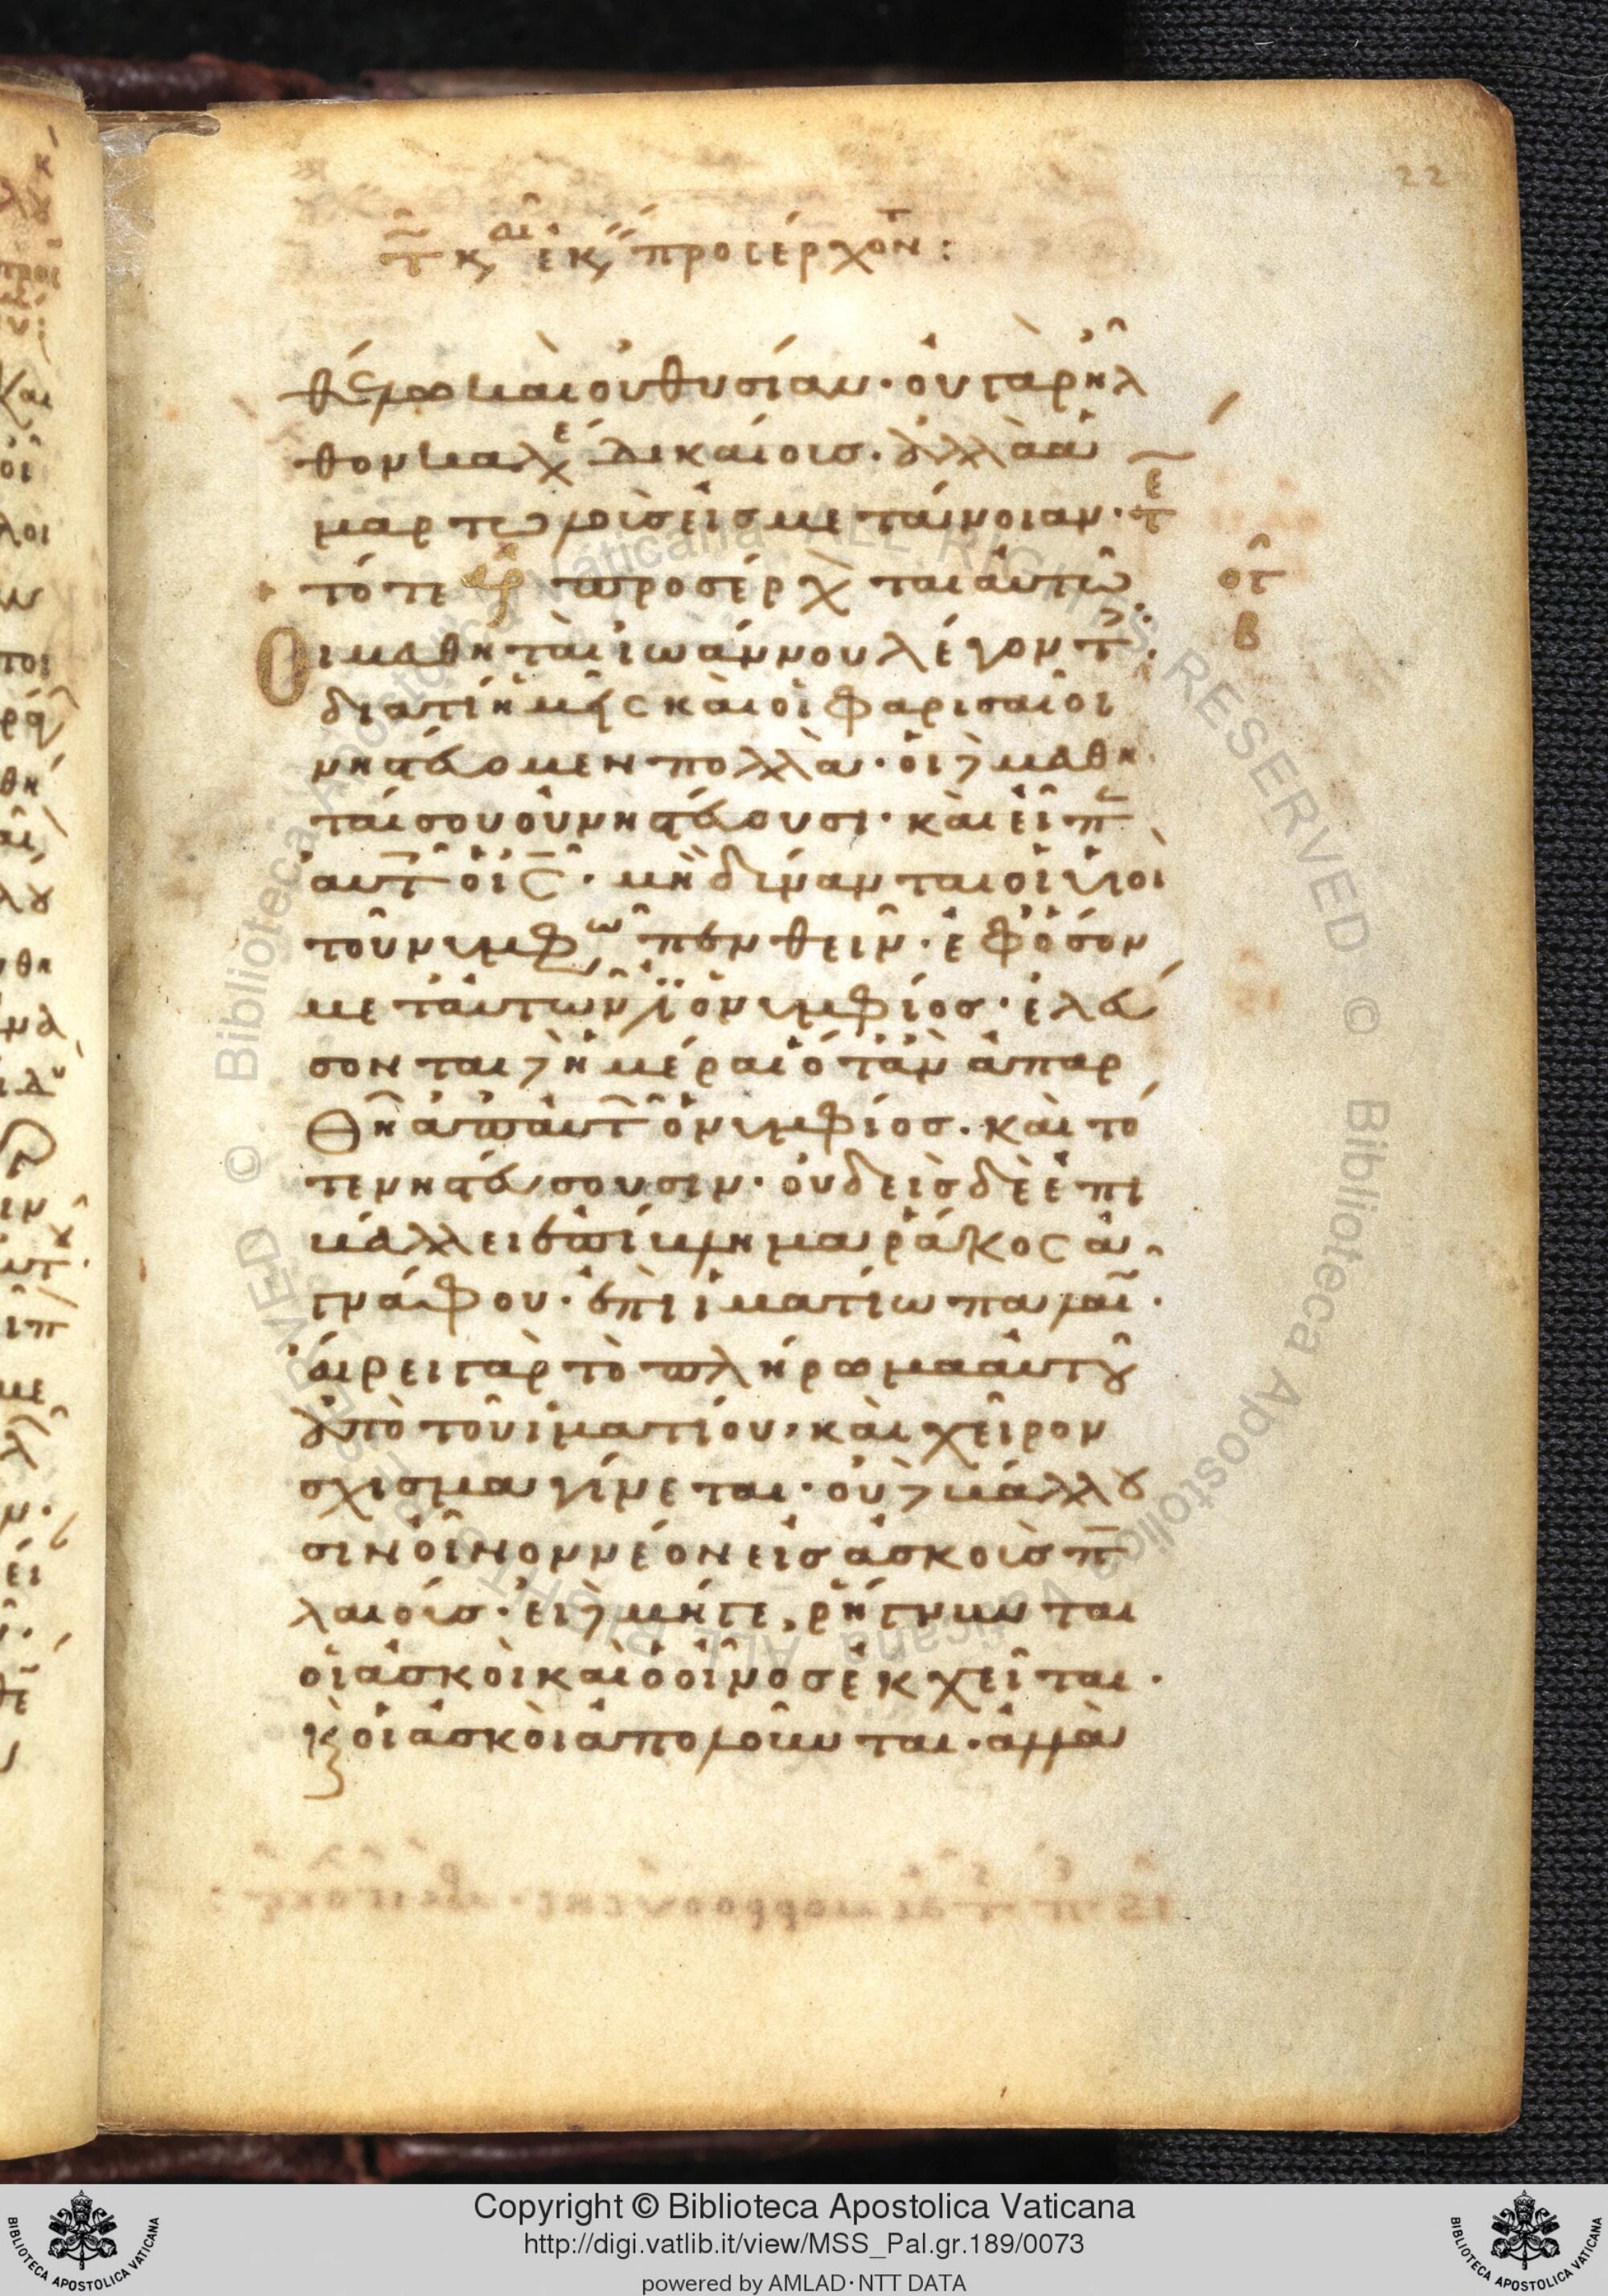 22
θέλω καὶ οὐ θυσίαν· οὐ γὰρ ἦλ
θον καλέ δικαίους· ἀλλὰ ἁ
μαρτωλοὺς εἰς μετάνοιαν· τε
τότε ἀρ προσέρχ ται αὐτῶ
Οἱ μαθηταὶ ἰωάννου λέγοντ·
διατί ἡμεῖς καὶ οἱ φαρισαῖοι
νηστεύομεν πολλά· οἱ δὲ μαθη
ταί σου οὐ νηστεύουσι· καὶ εἶπ
αὐτοῖς ὁ ις· μὴ δύνανται οἱ υἱοὶ
τοῦ νυμφῶ πενθεῖν· ἐφ' ὅσον
μετ' αὐτῶν ἐστιν ὁ νυμφίος· ἐλεύ
σονται δὲ ἡμέραι ὅταν ἀπαρ
θῆ ἀπ' αὐτ ὁ νυμφίος· καὶ τό
τε νηστεύσουσιν· οὐδεὶς δὲ ἐπι
βάλλει ἐπίβλημα ῥάκος ἀ
γνάφου· ἐπὶ ἱματίω παλαι·
αἴρει γὰρ τὸ πλήρωμα αὐτοῦ
ἀπὸ τοῦ ἱματίου, καὶ χεῖρον
σχίσμα γίνεται· οὐδὲ βάλλου
σιν οἶνον νέον εἰς ἀσκοὺς π
λαιούς· εἰ δὲ μήγε, ῥήγνυνται
οἱ ἀσκοὶ καὶ ὁ οἶνος ἐκχεῖται·
καὶ οἱ ἀσκοὶ ἀπολοῦνται· ἀλλὰ
Copyright © Biblioteca Apostolica Vaticana
http://digi.vatlib.it/view/MSS_Pal.gr.189/0073
powered by AMLAD·NTT DATA